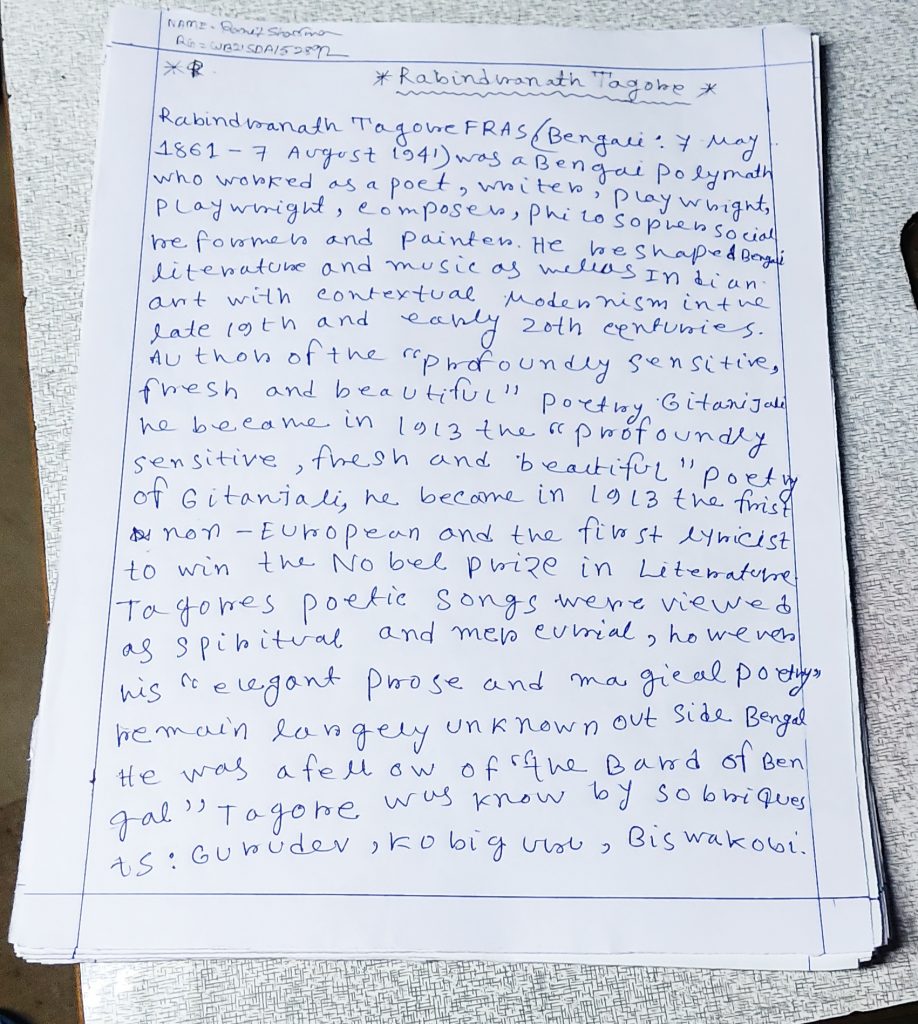 NAME -
* R
* Rabindranath Tagore *
Rabindranath Tagore FRAS (Bengali: 7 May
1861 – 7 August 1941) was a Bengai polymath
who worked as a poet, writer, playwright,
Playwright, composer, philosopher social
reformer and painter. He reshaped Bengali
literature and music as wellas Indian
art with contextual Modernism in the
late 19th and early 20th centuries.
Author of the "profoundly sensitive,
fresh and beautiful" poetry Gitanjali
he became in 1913 the "profoundly
sensitive, fresh and beautiful" poetry
of Gitanjali, he became in 1913 the frist
non-European and the first lyricist
to win the Nobel prize in Literature
Tagores poetic songs were viewed
as spiritual and mercurial, however
his "elegant prose and magical poetry"
remain largely unknown out side Bengal
He was a fellow of "the Bard of Ben
gal" Tagore was know by sobriques
ts: Gurudev, Kobiguru, Biswakobi.